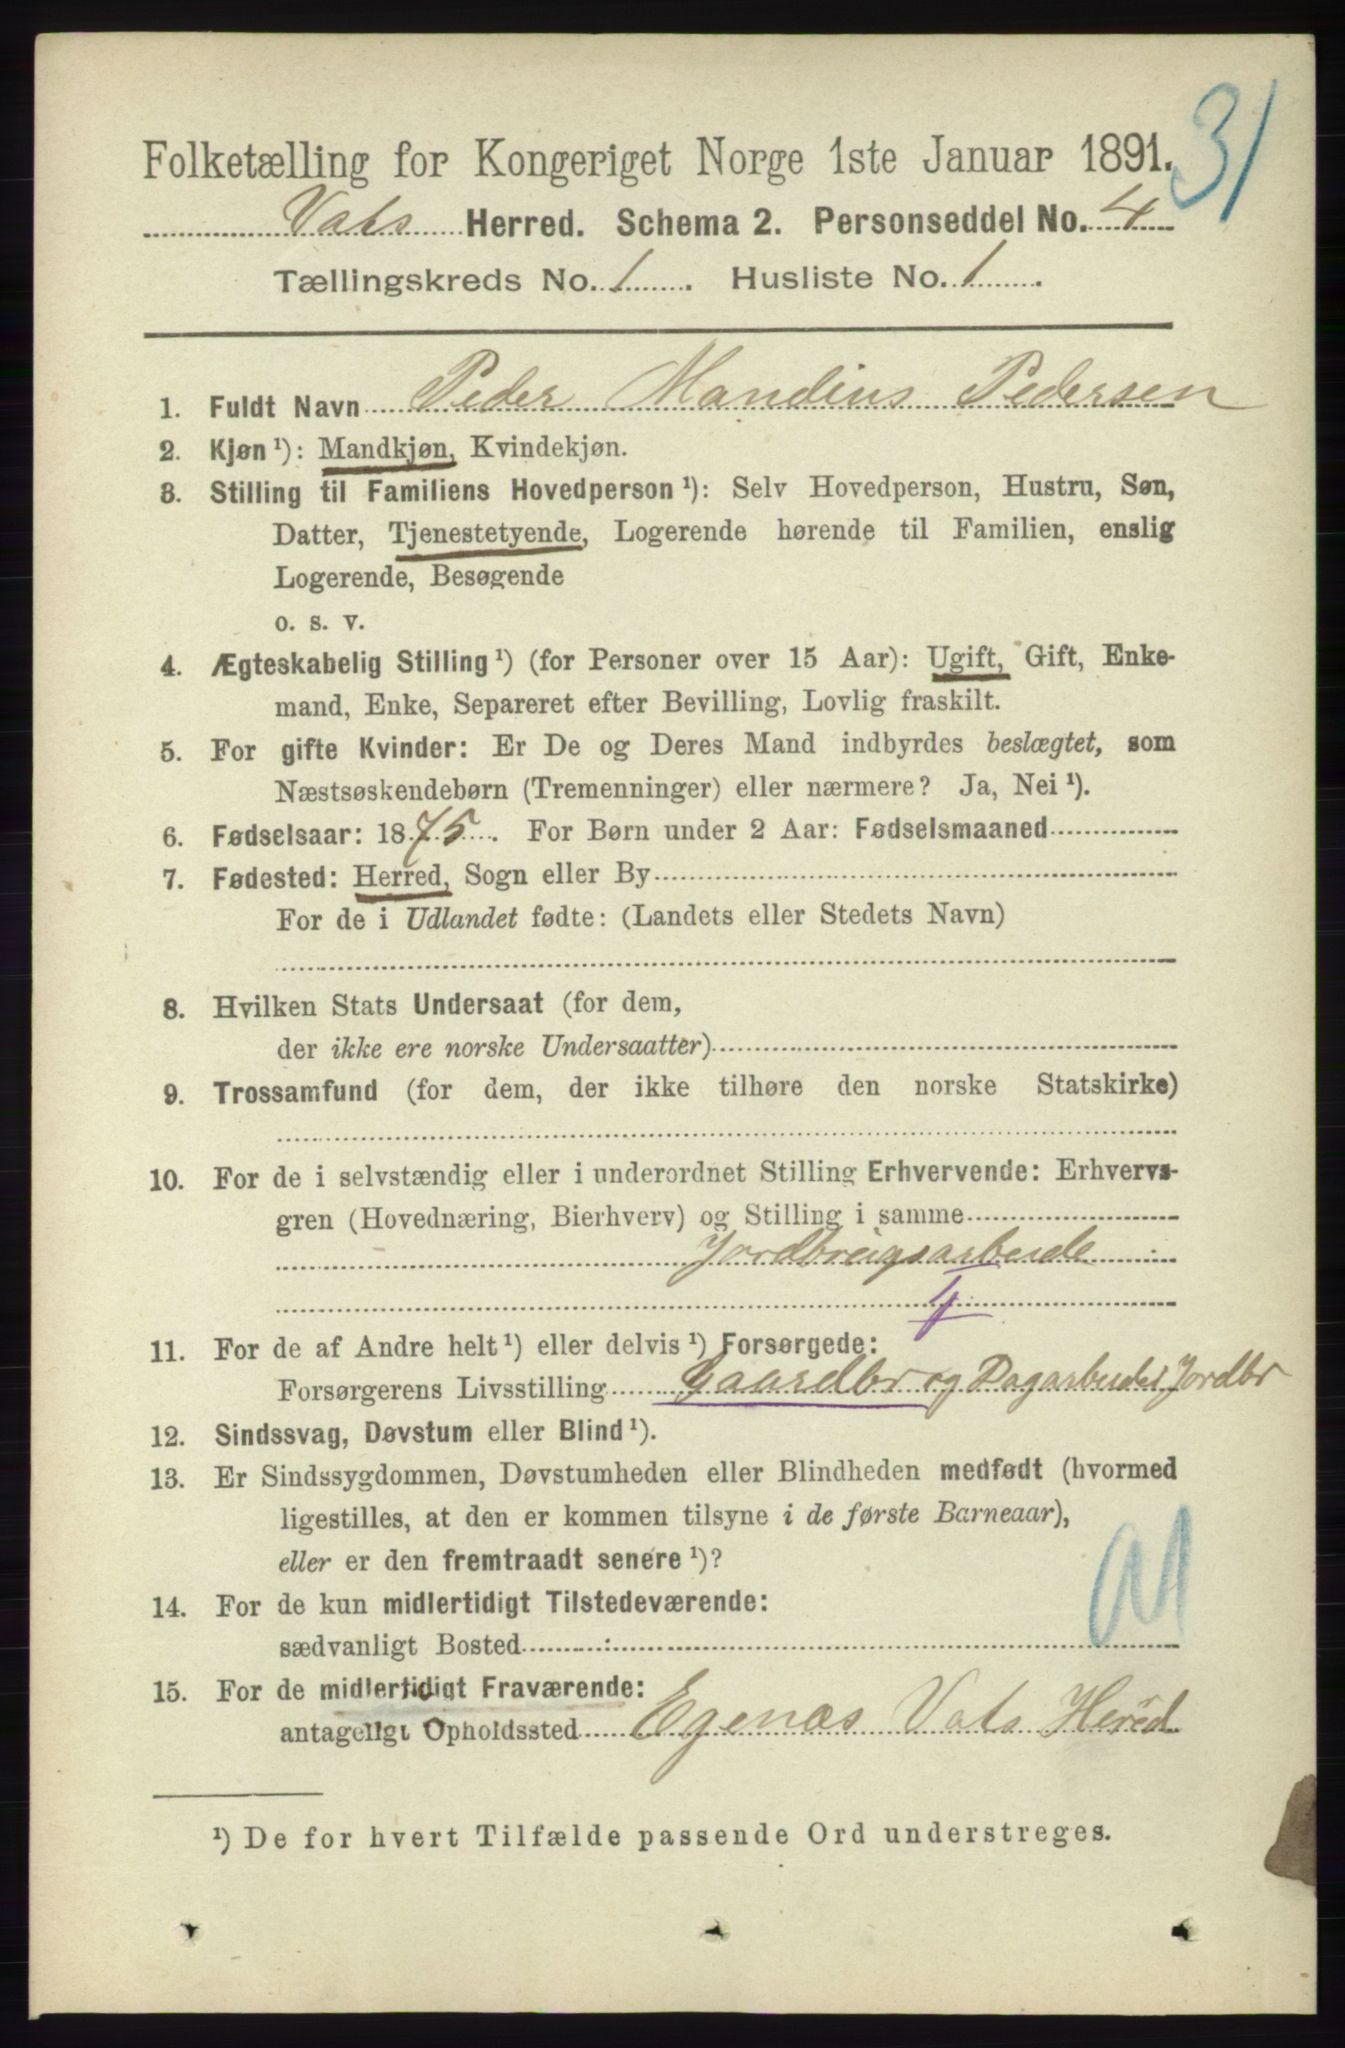 31
Folketælling for Kongeriget Norge 1ste Januar 1891.
Vats Herred. Schema 2. Personseddel No. 4
Tællingskreds No. 1. Husliste No. 1.
1. Fuldt Navn Peder Mandius Pedersen
2. Kjøn ¹): Mandkjøn, Kvindekjøn.
3. Stilling til Familiens Hovedperson ¹): Selv Hovedperson, Hustru, Søn,
Datter, Tjenestetyende, Logerende hørende til Familien, enslig
Logerende, Besøgende
o. s. v.
4. Ægteskabelig Stilling ¹) (for Personer over 15 Aar): Ugift, Gift, Enke-
mand, Enke, Separeret efter Bevilling, Lovlig fraskilt.
5. For gifte Kvinder: Er De og Deres Mand indbyrdes beslægtet, som
Næstsøskendebørn (Tremenninger) eller nærmere? Ja, Nei ¹).
6. Fødselsaar: 1875. For Børn under 2 Aar: Fødselsmaaned
7. Fødested: Herred, Sogn eller By
For de i Udlandet fødte: (Landets eller Stedets Navn)
8. Hvilken Stats Undersaat (for dem,
der ikke ere norske Undersaatter)
9. Trossamfund (for dem, der ikke tilhøre den norske Statskirke)
10. For de i selvstændig eller i underordnet Stilling Erhvervende: Erhvervs-
gren (Hovednæring, Bierhverv) og Stilling i samme
Jordbrugsarbeide
4
11. For de af Andre helt ¹) eller delvis ¹) Forsørgede:
Forsørgerens Livsstilling Gaardbr og Dagarbeider Jordbr
12. Sindssvag, Døvstum eller Blind ¹).
13. Er Sindssygdommen, Døvstumheden eller Blindheden medfødt (hvormed
ligestilles, at den er kommen tilsyne i de første Barneaar),
eller er den fremtraadt senere ¹)?
14. For de kun midlertidigt Tilstedeværende:
sædvanligt Bosted
15. For de midlertidigt Fraværende:
antageligt Opholdssted Egenæs Vats Hered
¹) De for hvert Tilfælde passende Ord understreges.